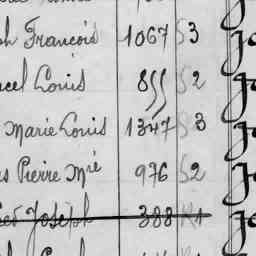 ph François 1067 S3
cel Louis 855 S2
Marie Louis 1347 S3
s Pierre Mie 976 S2
Joseph 388 R1